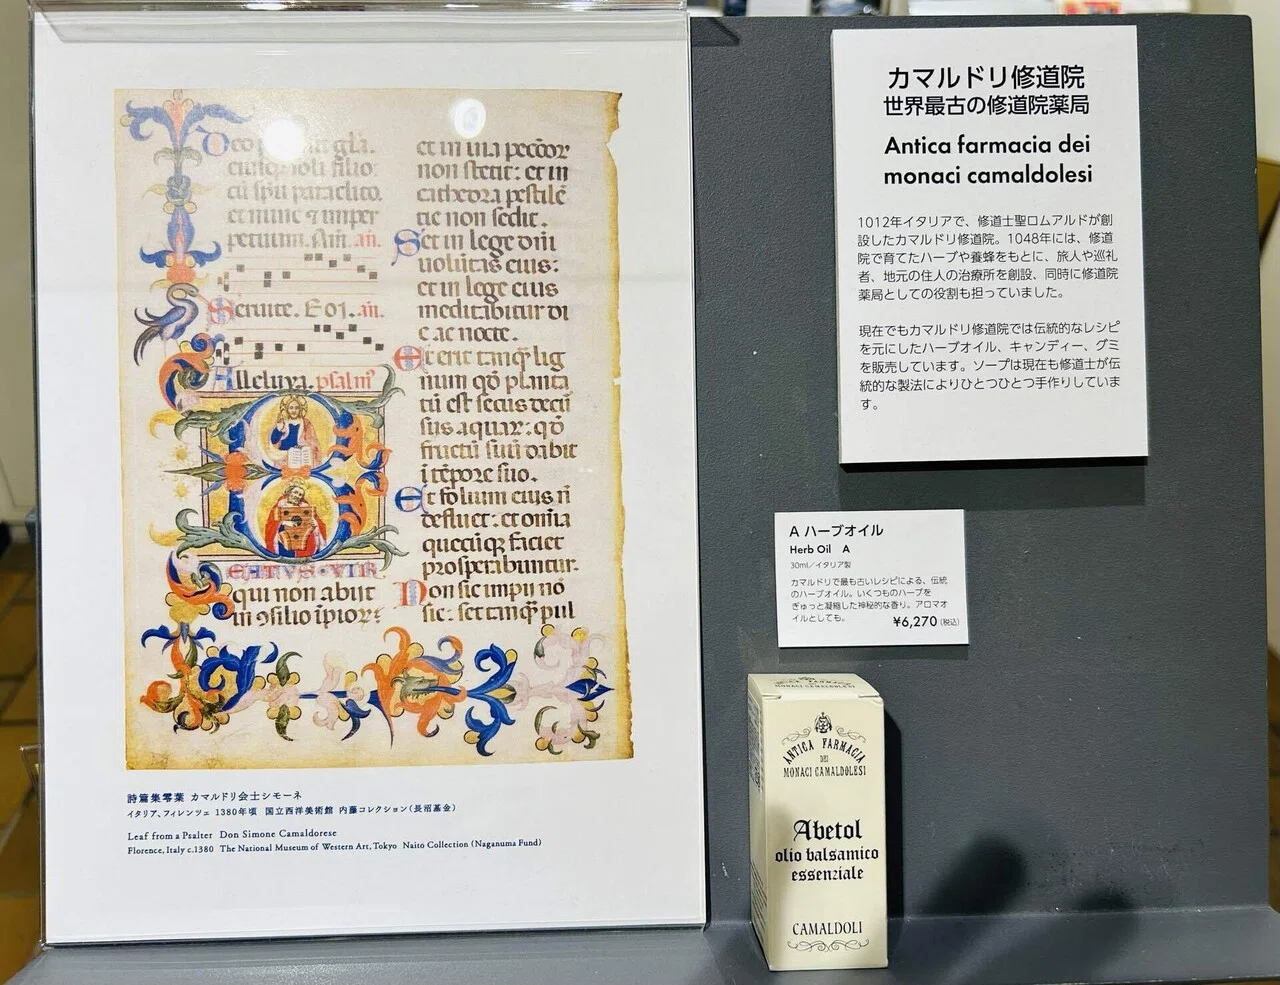 et in uia peccōr
non stetit: et in
cathedra pestilē
tie non sedit.
Set in lege dn̄i
uolūtas eius:
et in lege eius
meditabitur di
e ac nocte.
Et erit tanq̄ lig
num qđ planta
tū est secus decū
sus aquar: qđ
fructū suū dabit
ī tēpore suo.
Et folium eius n̄
defluet: et om̄ia
quecūq̄ faciet
prosperabuntur.
Non sic impij nō
sic: set tanq̄ pul
petuum. Am̄. an̄.
Alleluya. psalm
qui non abiit
詩篇集零葉 カマルドリ会士シモーネ
イタリア、フィレンツェ 1380年頃 国立西洋美術館 内藤コレクション(長沼基金)
Leaf from a Psalter Don Simone Camaldorese
Florence, Italy c.1380 The National Museum of Western Art, Tokyo Naito Collection (Naganuma Fund)
カマルドリ修道院
世界最古の修道院薬局
Antica farmacia dei
monaci camaldolesi
1012年イタリアで、修道士聖ロムアルドが創
設したカマルドリ修道院。1048年には、修道
院で育てたハーブや養蜂をもとに、旅人や巡礼
者、地元の住人の治療所を創設、同時に修道院
薬局としての役割も担っていました。
現在でもカマルドリ修道院では伝統的なレシピ
を元にしたハーブオイル、キャンディー、グミ
を販売しています。ソープは現在も修道士が伝
統的な製法によりひとつひとつ手作りしていま
す。
A ハーブオイル
Herb Oil A
30ml/イタリア製
カマルドリで最も古いレシピによる、伝統
のハーブオイル。いくつものハーブを
ぎゅっと凝縮した神秘的な香り。アロマオ
イルとしても。
¥6,270(税込)
MONACI CAMALDOLESI
ANTICA FARMACIA
DEI
MONACI CAMALDOLESI
Abetol
olio balsamico
essenziale
CAMALDOLI